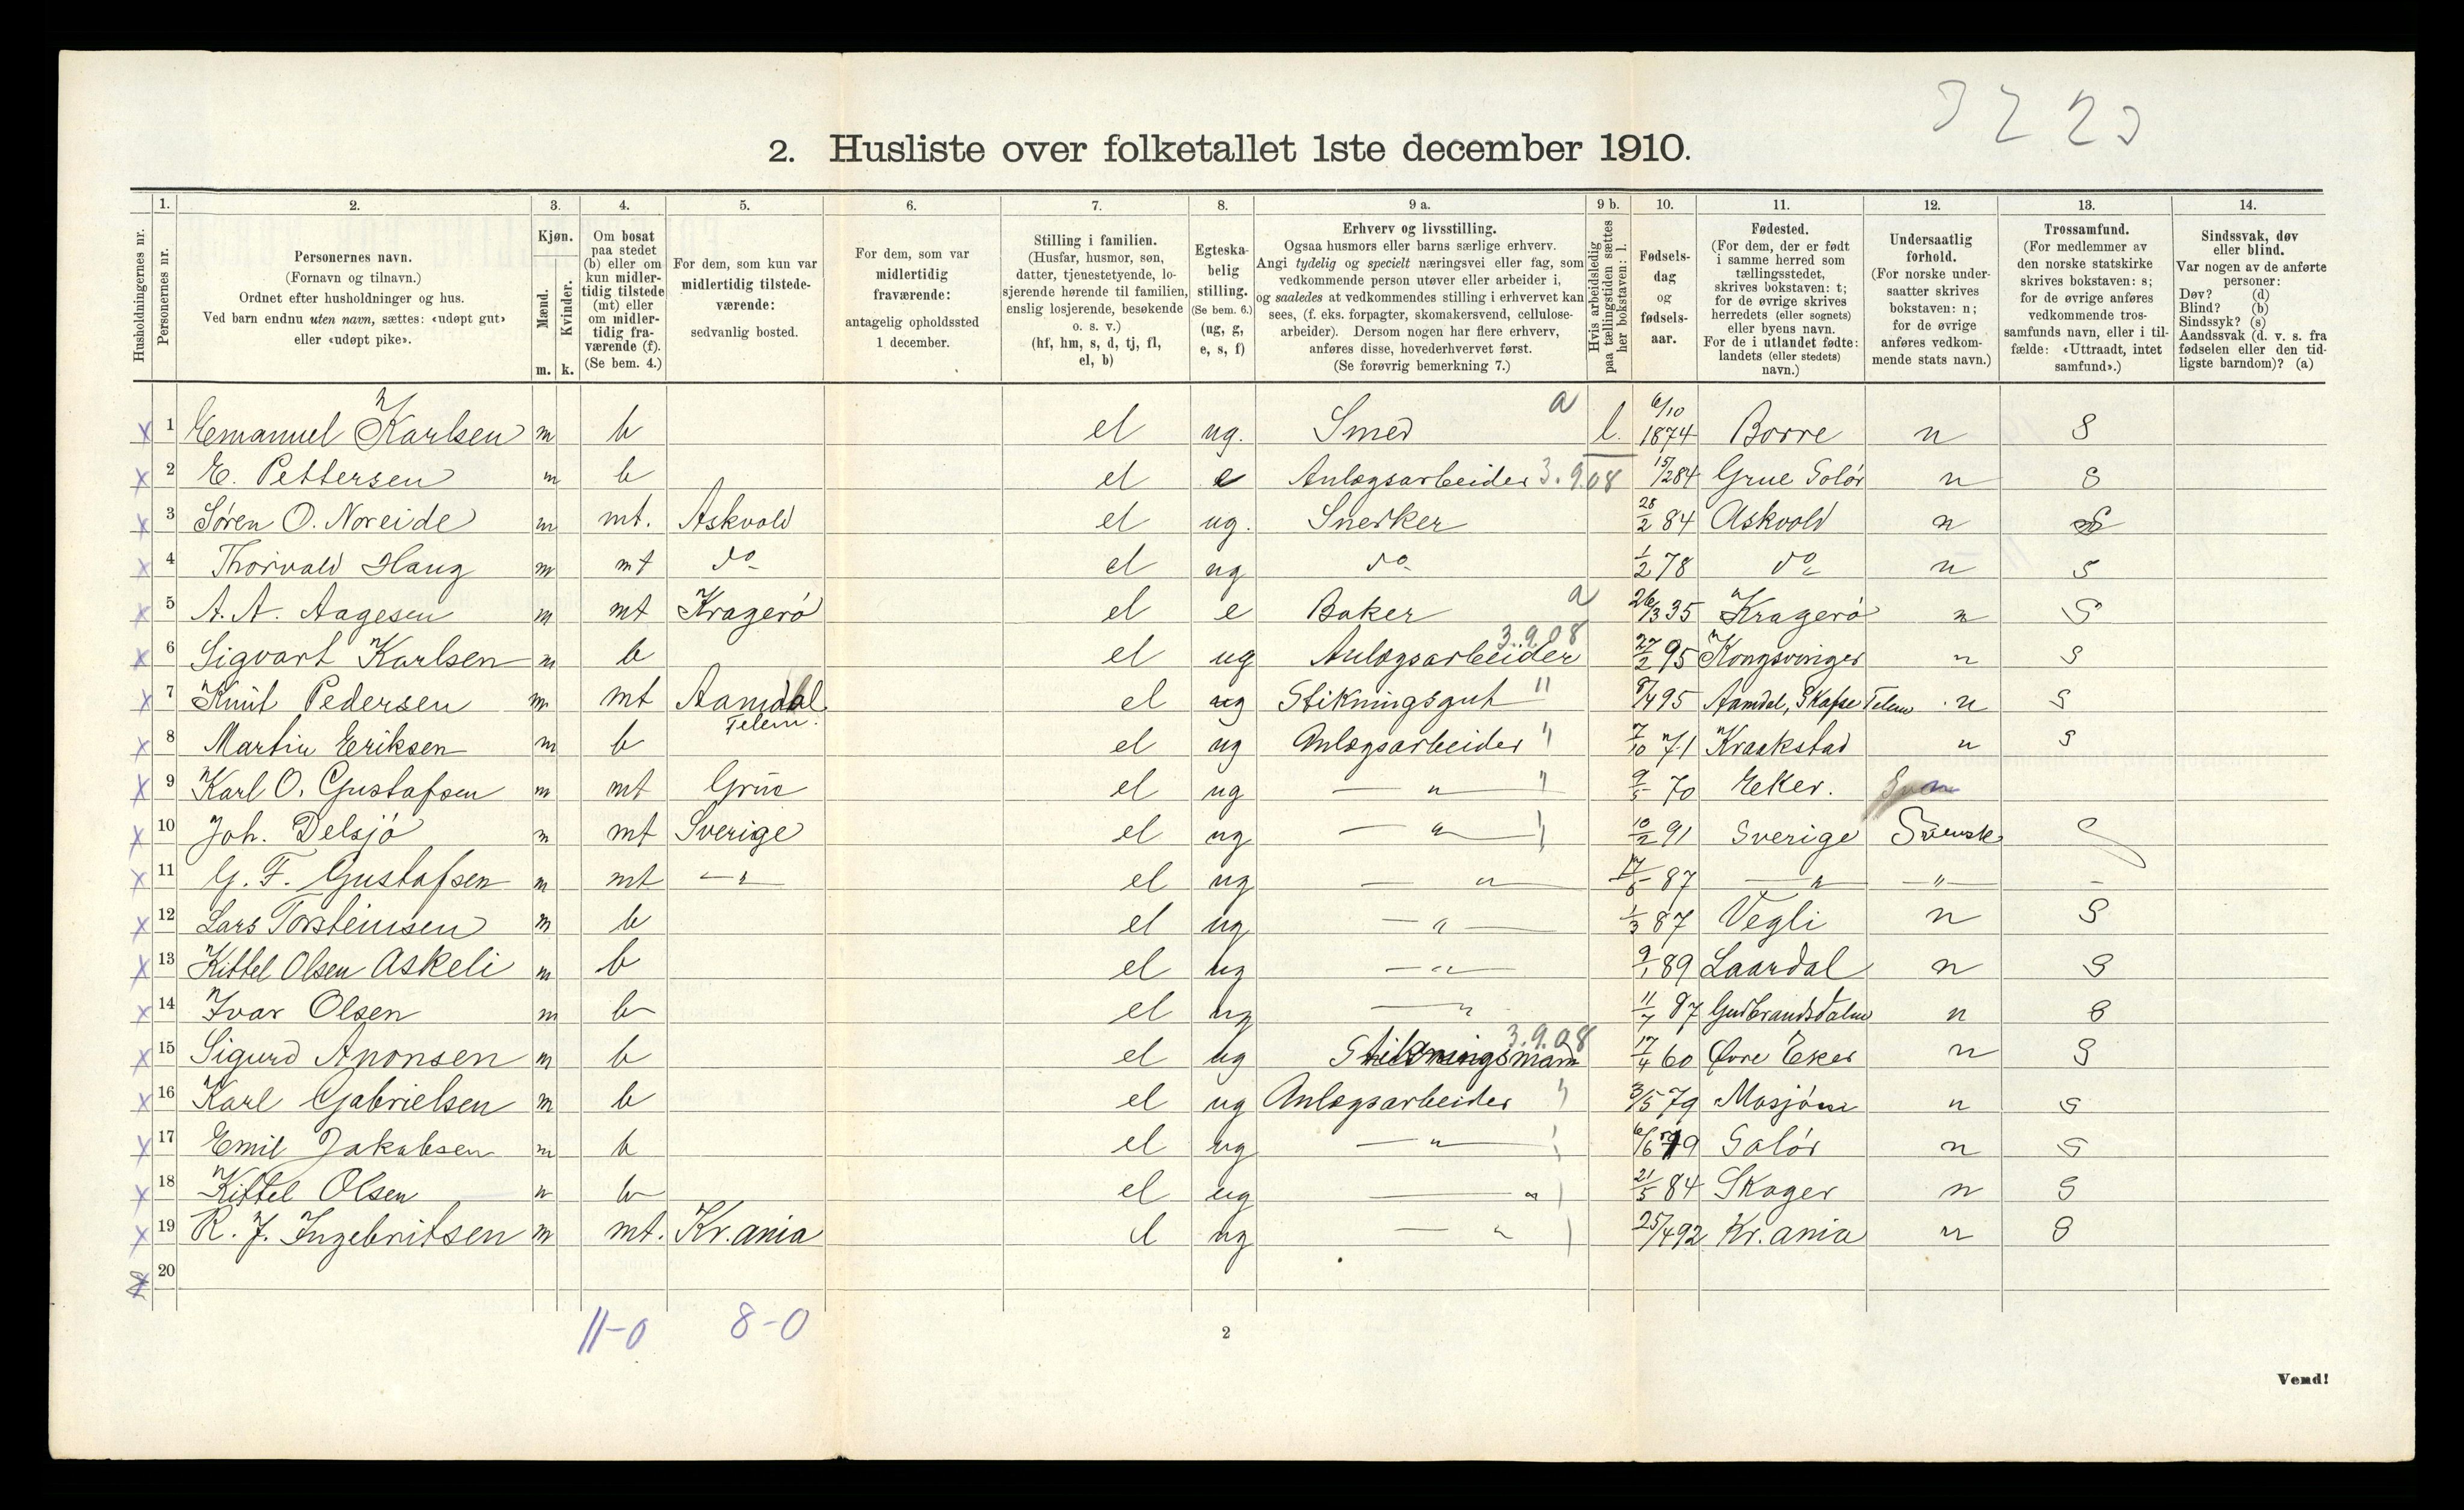 3223
2. Husliste over folketallet 1ste december 1910.
Husholdningernes nr.
1. Personernes nr.
2. Personernes navn.
(Fornavn og tilnavn.)
Ordnet efter husholdninger og hus.
Ved barn endnu uten navn, sættes: «udøpt gut»
eller «udøpt pike».
3. Kjøn.
Mænd. Kvinder.
m. k.
4. Om bosat
paa stedet
(b) eller om
kun midler-
tidig tilstede
(mt) eller
om midler-
tidig fra-
værende (f).
(Se bem. 4.)
5. For dem, som kun var
midlertidig tilstede-
værende:
sedvanlig bosted.
6. For dem, som var
midlertidig
fraværende:
antagelig opholdssted
1 december.
7. Stilling i familien.
(Husfar, husmor, søn,
datter, tjenestetyende, lo-
sjerende hørende til familien,
enslig losjerende, besøkende
o. s. v.)
(hf, hm, s, d, tj, fl,
el, b)
8. Egteska-
belig
stilling.
(Se bem. 6.)
(ug, g,
e, s, f)
9 a. Erhverv og livsstilling.
Ogsaa husmors eller barns særlige erhverv.
Angi tydelig og specielt næringsvei eller fag, som
vedkommende person utøver eller arbeider i,
og saaledes at vedkommendes stilling i erhvervet kan
sees, (f. eks. forpagter, skomakersvend, cellulose-
arbeider). Dersom nogen har flere erhverv,
anføres disse, hovederhvervet først.
(Se forøvrig bemerkning 7.)
9 b. Hvis arbeidsledig
paa tællingstiden sættes
her bokstaven: l.
10. Fødsels-
dag
og
fødsels-
aar.
11. Fødested.
(For dem, der er født
i samme herred som
tællingsstedet,
skrives bokstaven: t;
for de øvrige skrives
herredets (eller sognets)
eller byens navn.
For de i utlandet fødte:
landets (eller stedets)
navn.)
12. Undersaatlig
forhold.
(For norske under-
saatter skrives
bokstaven: n;
for de øvrige
anføres vedkom-
mende stats navn.)
13. Trossamfund.
(For medlemmer av
den norske statskirke
skrives bokstaven: s;
for de øvrige anføres
vedkommende tros-
samfunds navn, eller i til-
fælde: «Uttraadt, intet
samfund».)
14. Sindssvak, døv
eller blind.
Var nogen av de anførte
personer:
Døv? (d)
Blind? (b)
Sindssyk? (s)
Aandssvak (d. v. s. fra
fødselen eller den tid-
ligste barndom)? (a)
x 1 Emanuel Karlsen m b el ug. Smed a l. 6/10 1874 Borre n S
x 2 E. Pettersen m b el e Anlægsarbeider 3.9.08 15/2 84 Grue Solör n S
x 3 Søren O. Noreide m mt. Askvold el ug. Snerker 28/2 84 Askvold n S
x 4 Thorvald Haug m mt do el ug do 1/2 78 do n S
x 5 A. A. Aagesen m mt Kragerö el e Baker a 26/3 35 Kragerö n S
x 6 Sigvart Karlsen m b el ug Anlægsarbeider 3.9.08 27/2 95 Kongsvinger n S
x 7 Knut Pedersen m mt Aamdal Telem. el ug Stikningsgut " 8/4 95 Aamdal, Skafse Telem n S
x 8 Martin Eriksen m b el ug Anlægsarbeider " 7/10 71 Kraakstad n S
x 9 Karl O. Gustafsen m mt Grue el ug — " — " 9/5 70 Eker.
x 10 Joh. Delsjö m mt Sverige el ug — " — " 10/2 91 Sverige Svensk
x 11 G. F. Gustafsen m mt — " — el ug — " — 17/5 87 — " — — " — -
x 12 Lars Torsteinsen m b el ug — " — 1/3 87 Vegli n S
x 13 Kittel Olsen Askeli m b el ug — " — 9/1 89 Laardal n S
x 14 Ivar Olsen m b el ug — " 11/7 87 Gudbrandsdalen n S
x 15 Sigurd Aronsen m b el ug Stikningsmann 3.9.08 17/4 60 Øvre Eker n S
x 16 Karl Gabrielsen m b el ug Anlægsarbeider " 3/5 79 Mosjöen n S
x 17 Emil Jakobsen m b el ug — " — " 6/6 79 Solör n S
x 18 Kittel Olsen m b el ug — " 21/5 84 Skoger n S
x 19 R. J. Ingebritsen m mt. Kr.ania el ug — " 25/4 92 Kr.ania n S
x 20
11-0 8-0
2
Vend!